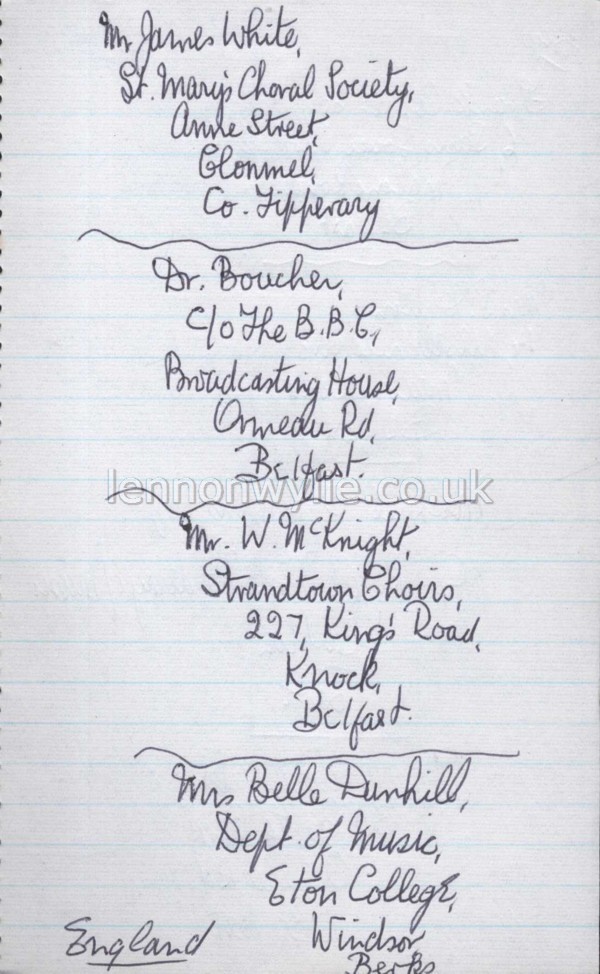 Mr James White,
St. Mary's Choral Society,
Anne Street,
Clonmel,
Co. Tipperary
Dr. Boucher,
C/o The B.B.C,
Broadcasting House,
Ormeau Rd,
Belfast.
lennonwylie.co.uk
Mr. W. McKnight,
Strandtown Choirs,
227, King's Road,
Knock,
Belfast.
Mrs Belle Dunhill,
Dept. of Music,
Eton College,
Windsor
England
Berks